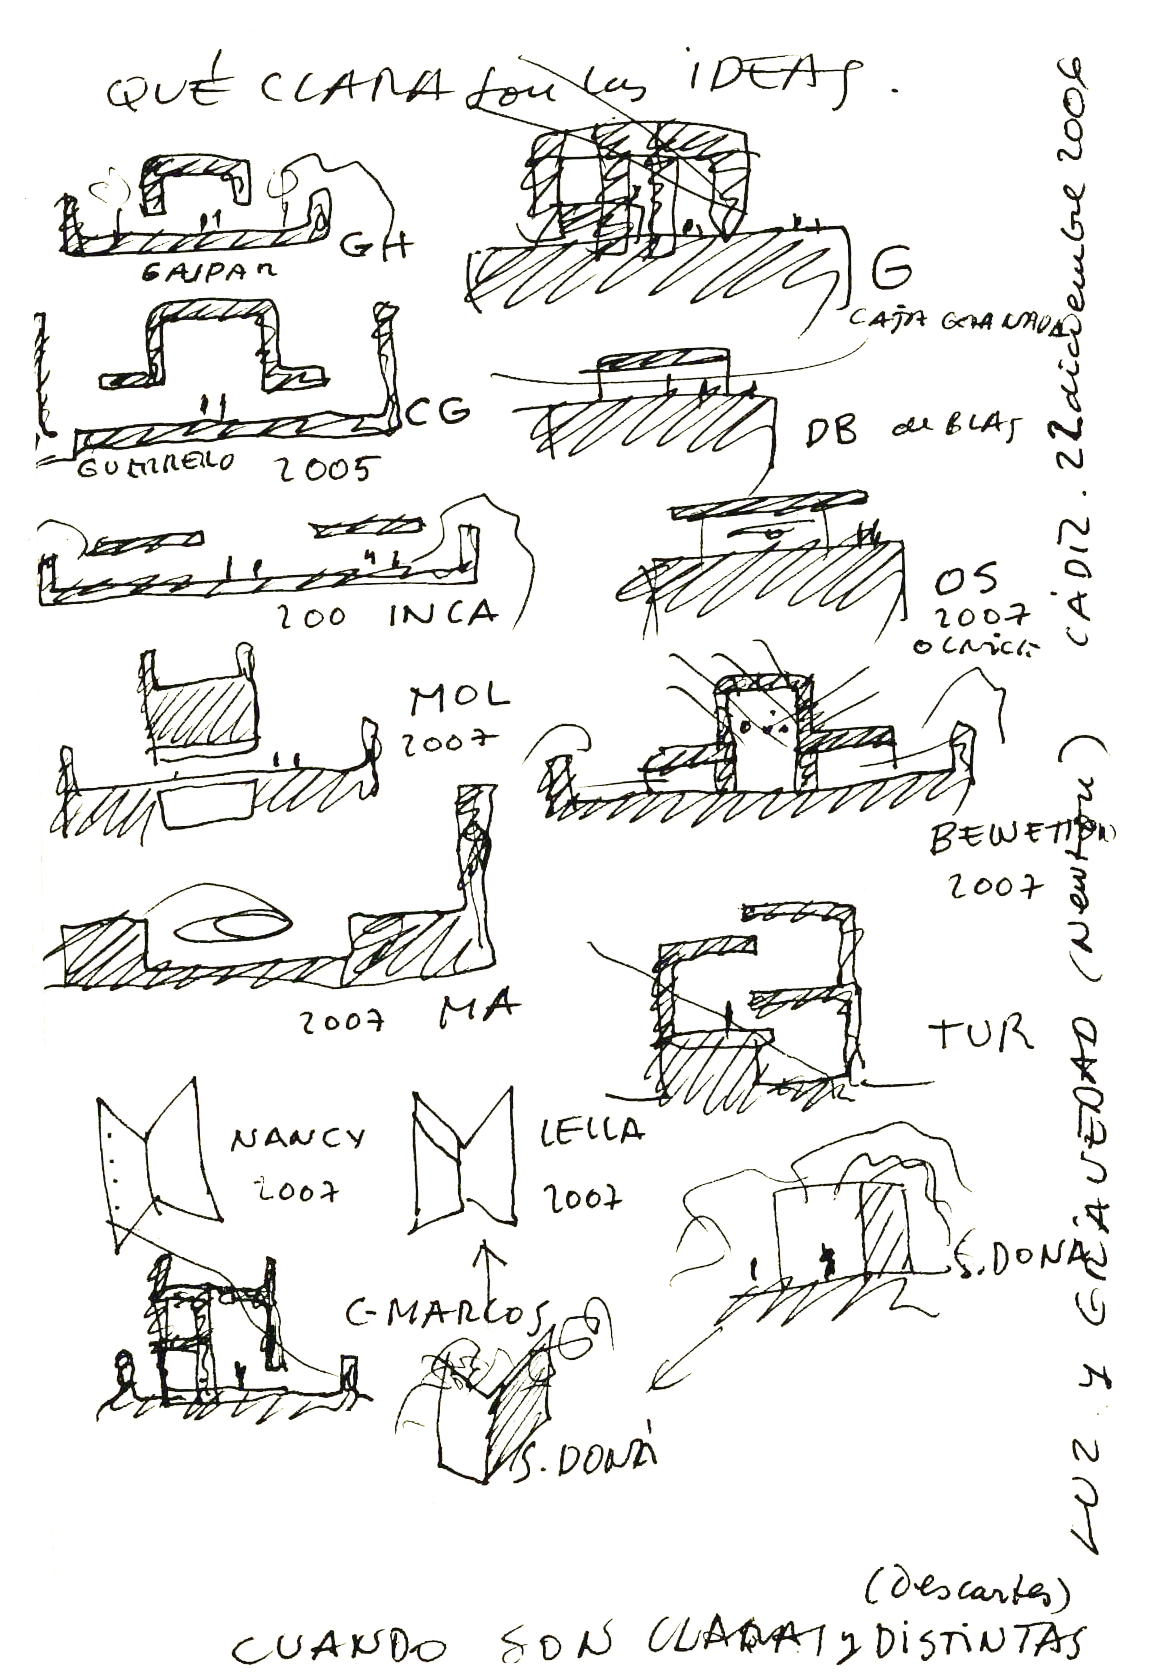 QUÉ CLARA son las IDEAS.
GH
GASPAR
G
CAJA GRANADA
CG
GUERRERO 2005
DB de BLAS
200 INCA
OS
2007
OLNICK
MOL
2007
BENETTON
2007
2007 MA
TUR
NANCY
2007
LELLA
2007
S. DONÁ
C-MARCOS
S. DONÁ
LUZ y GRAVEDAD (Newton) CÁDIZ. 22 diciembre 2006
(Descartes)
CUANDO SON CLARAS y DISTINTAS